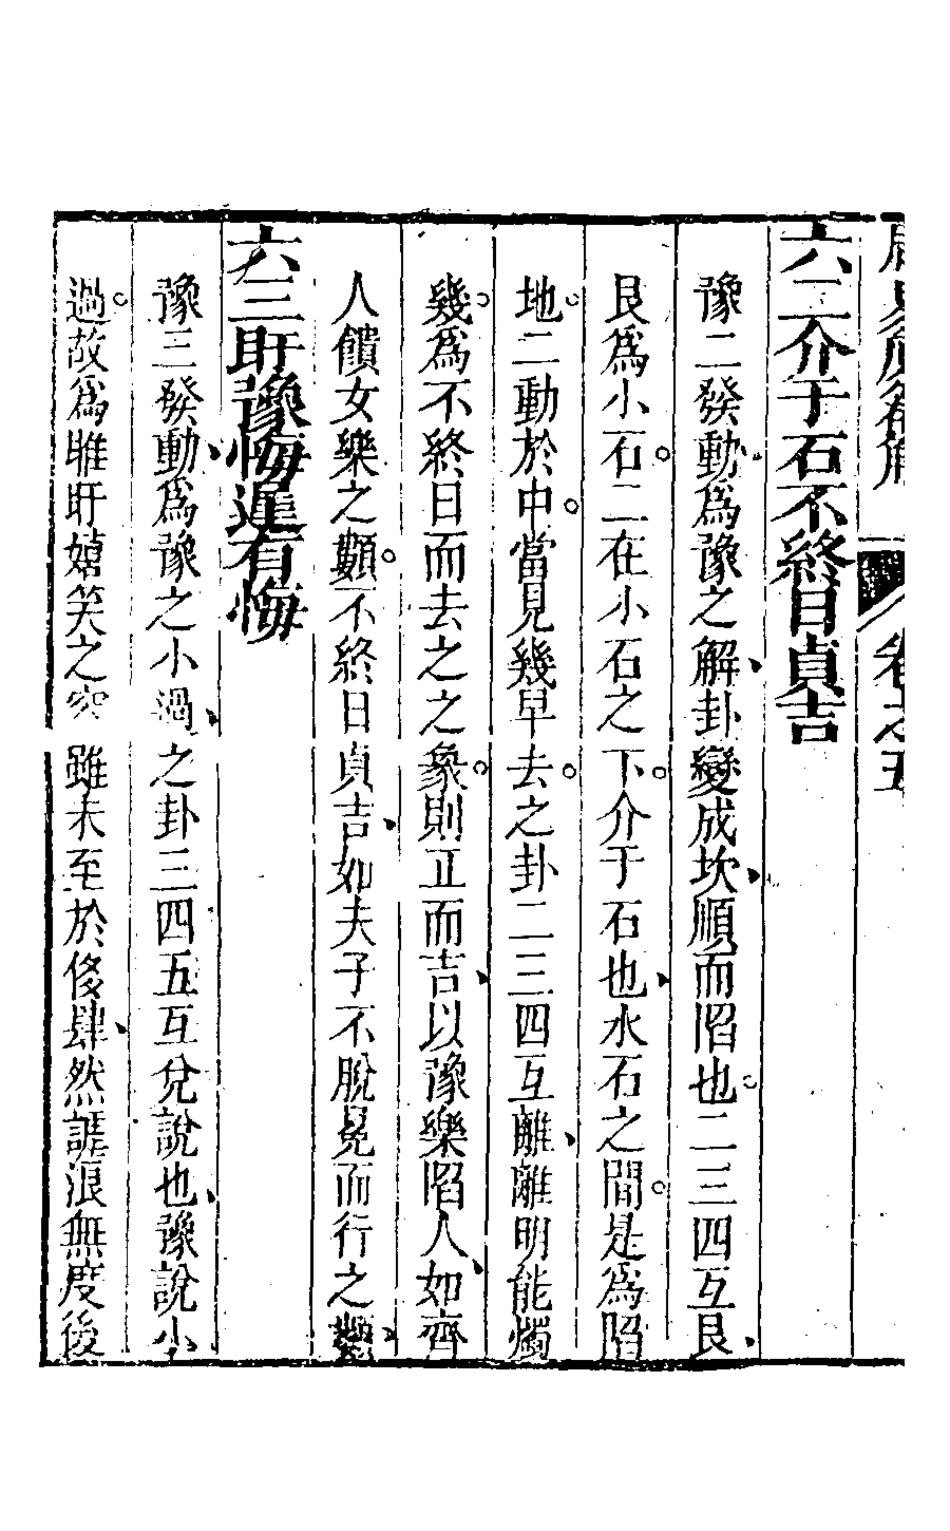 六二介于石不終日貞吉
豫二發動爲豫之解卦變成坎順而陷也二三四互艮
艮爲小石二在小石之下介于石也水石之間是爲陷
地二動於中當見幾早去之卦二三四互離離明能燭
幾爲不終日而去之之象則正而吉以豫樂陷人如齊
人饋女樂之類不終日貞吉如夫子不脫冕而行之類
六三盱豫悔遲有悔
豫三發動爲豫之小過之卦三四五互兌說也豫說小
過故爲睢盱嬉笑之 雖未至於侈肆然謔浪無度後
卷之五